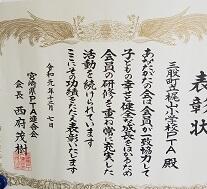 表彰状
三股町立梶山小学校PTA殿
あなたがたの会は会員が一致協力して
子どもの幸せと健全な成長をはかるため
会員の研修を重ね常に充実した
活動を続けられています
ここにその功績をたたえ表彰いたします
令和元年十二月七日
宮崎県PTA連合会
会長 西府茂樹